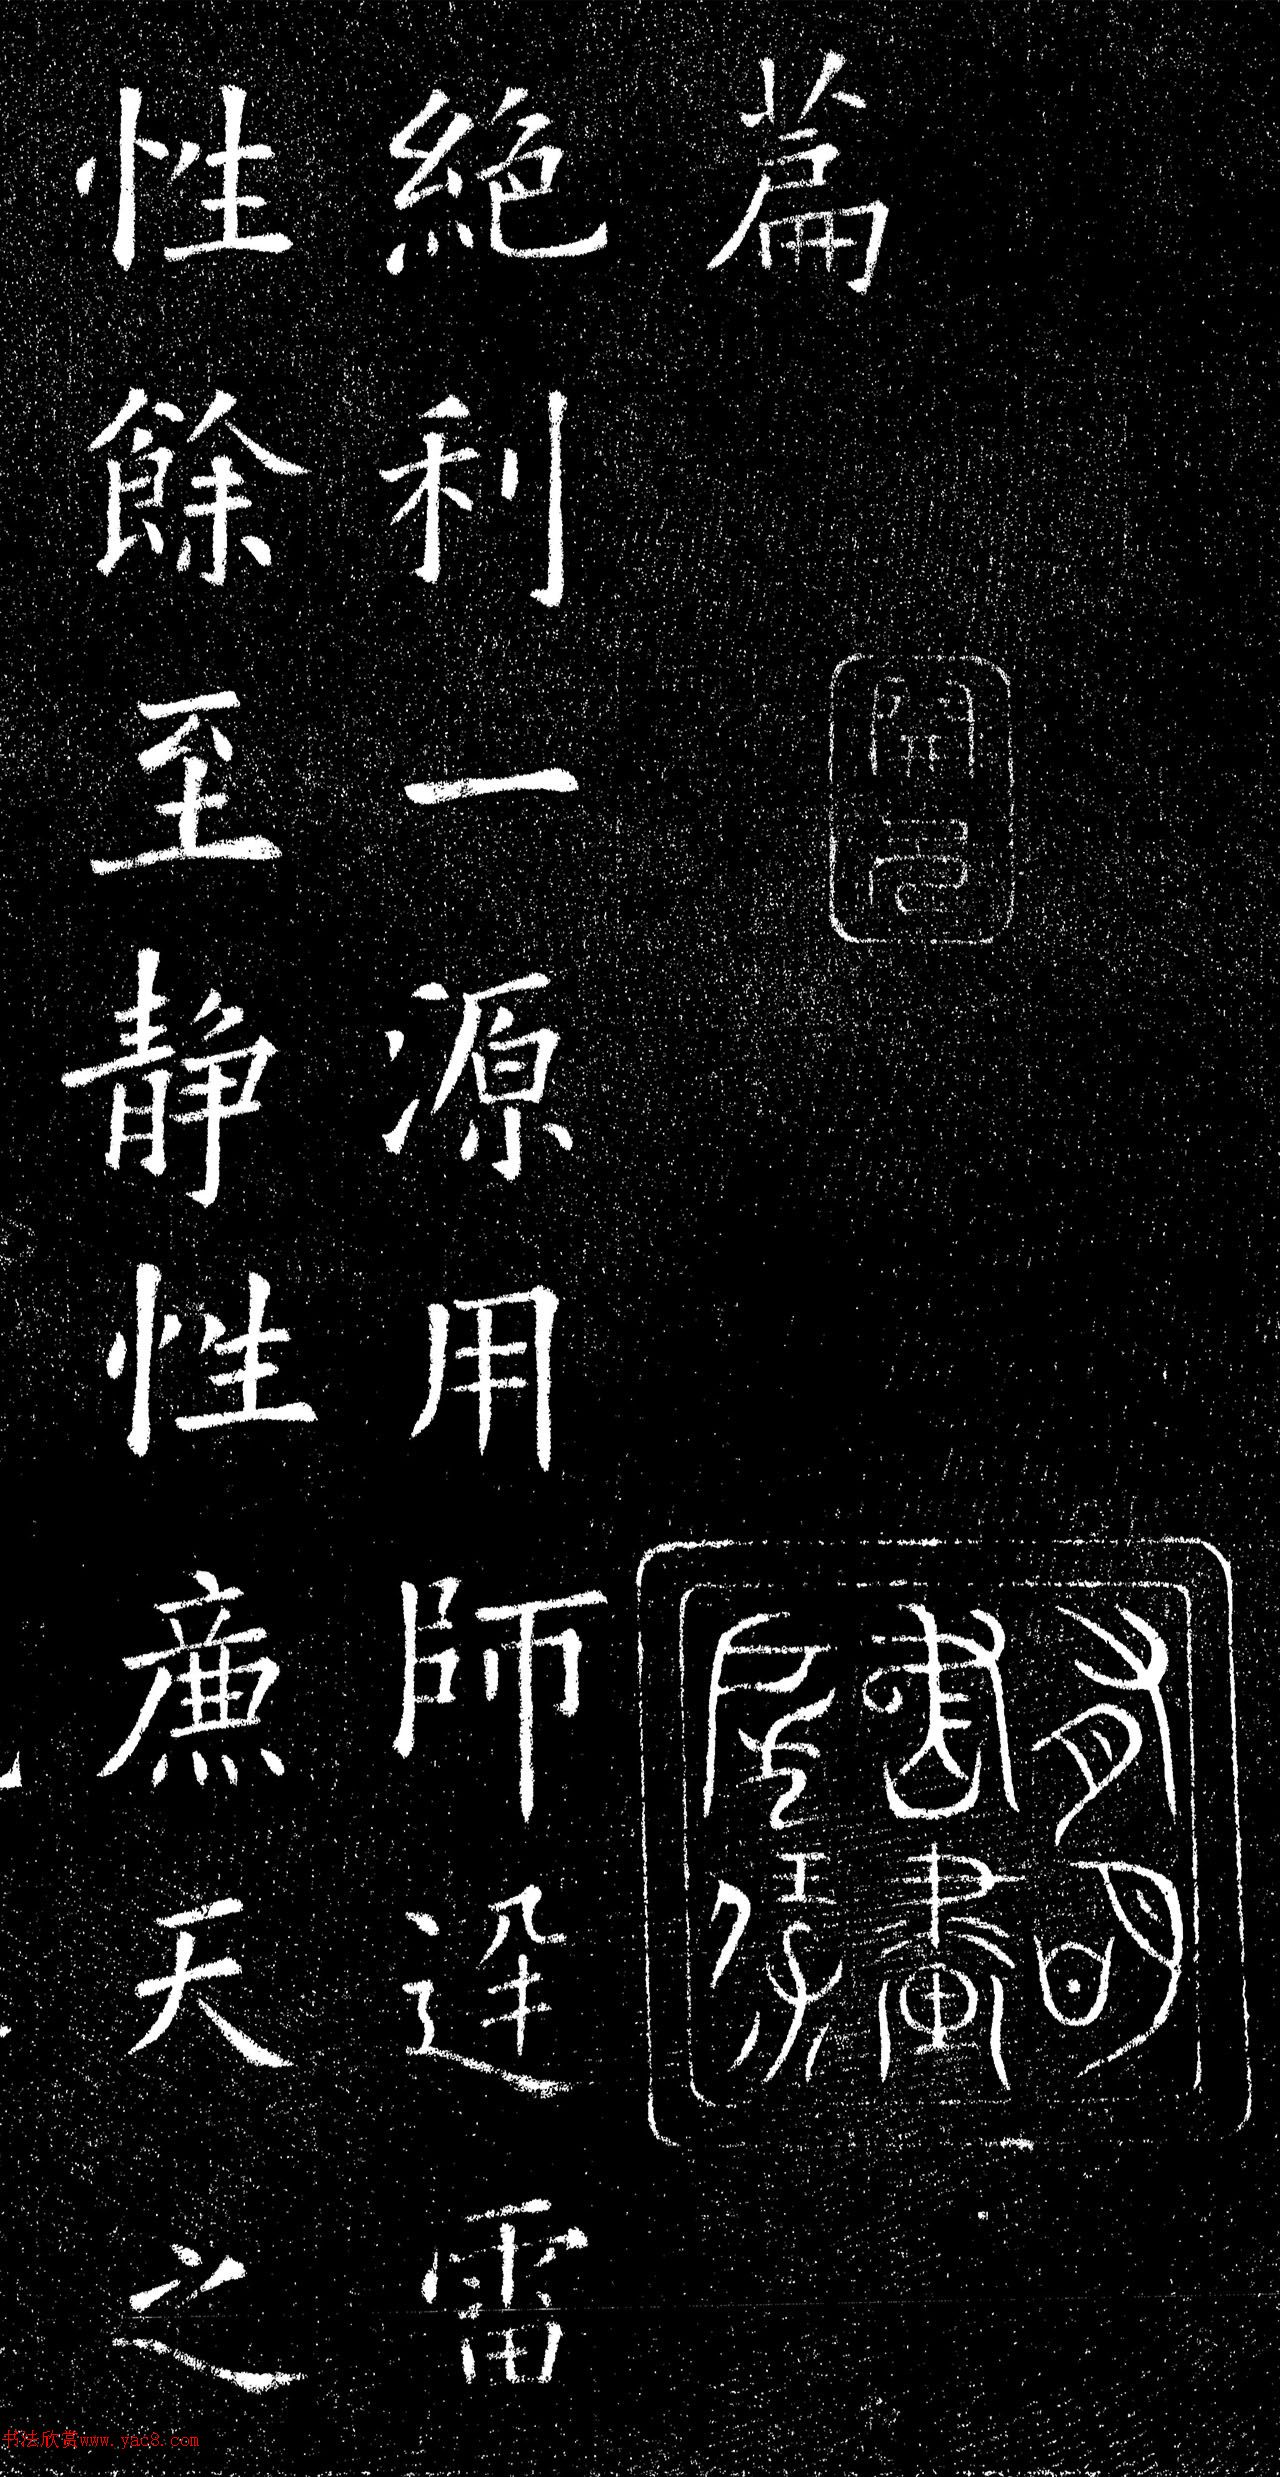 篇
絕利一源用師逕雷
性餘至靜性廉天之
開元
書法欣赏www.yac8.com